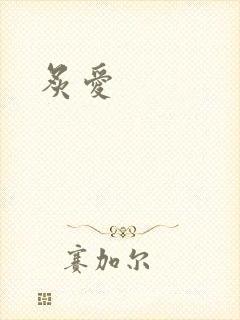 炙愛
赛加尔